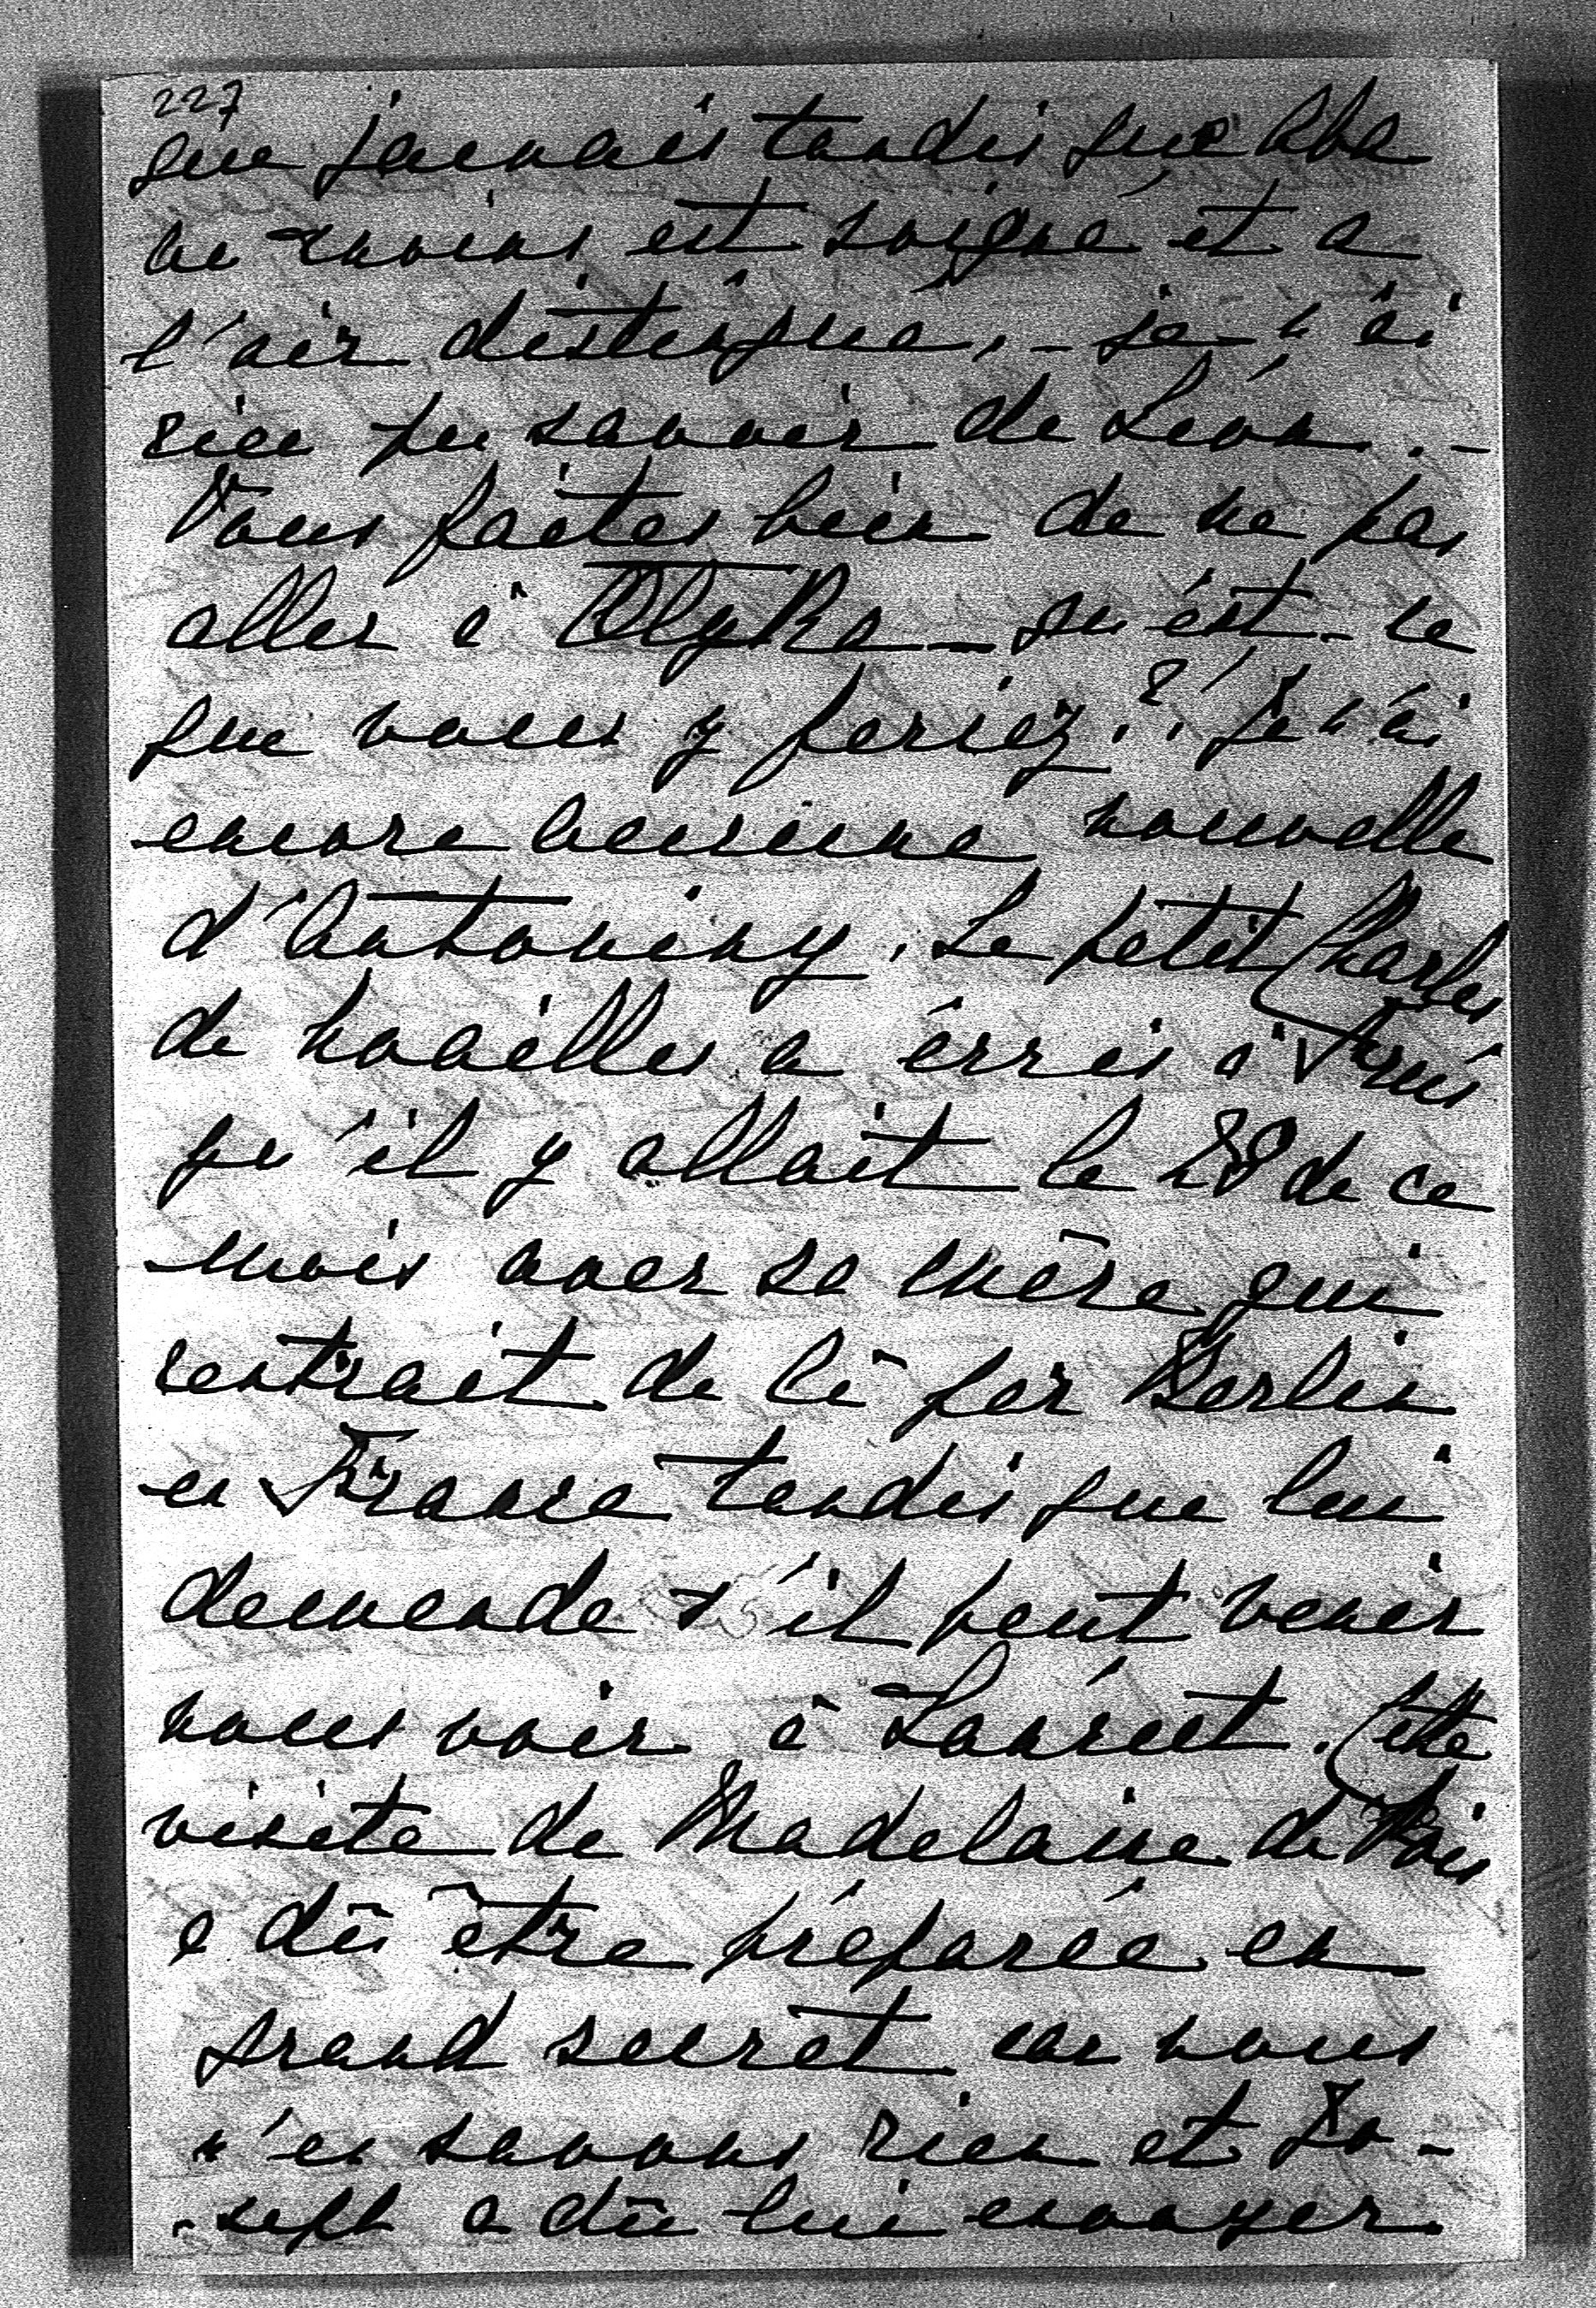 227
que jamais tandis que Aba
au moins est soigné et a
l'air distingué, – je n'ai
rien pu savoir de Léon. –
Vous faites bien de ne pas
aller à Olyka – qu'est-ce
que vous y feriez? Je n'ai
encore aucune nouvelle
d'Antoniny. Le petit Charles
de Noailles a écrit à
qu'il y allait le 28 de ce
mois avec sa mère qui
rentrait de là par Berlin
en France tandis que lui
demande s'il peut venir
nous voir à Lançut. Cette
visite de Madelaine de
a dû être préparée en
grand secret car nous
n'en savons rien et Jo-
-seph a dû lui envoyer